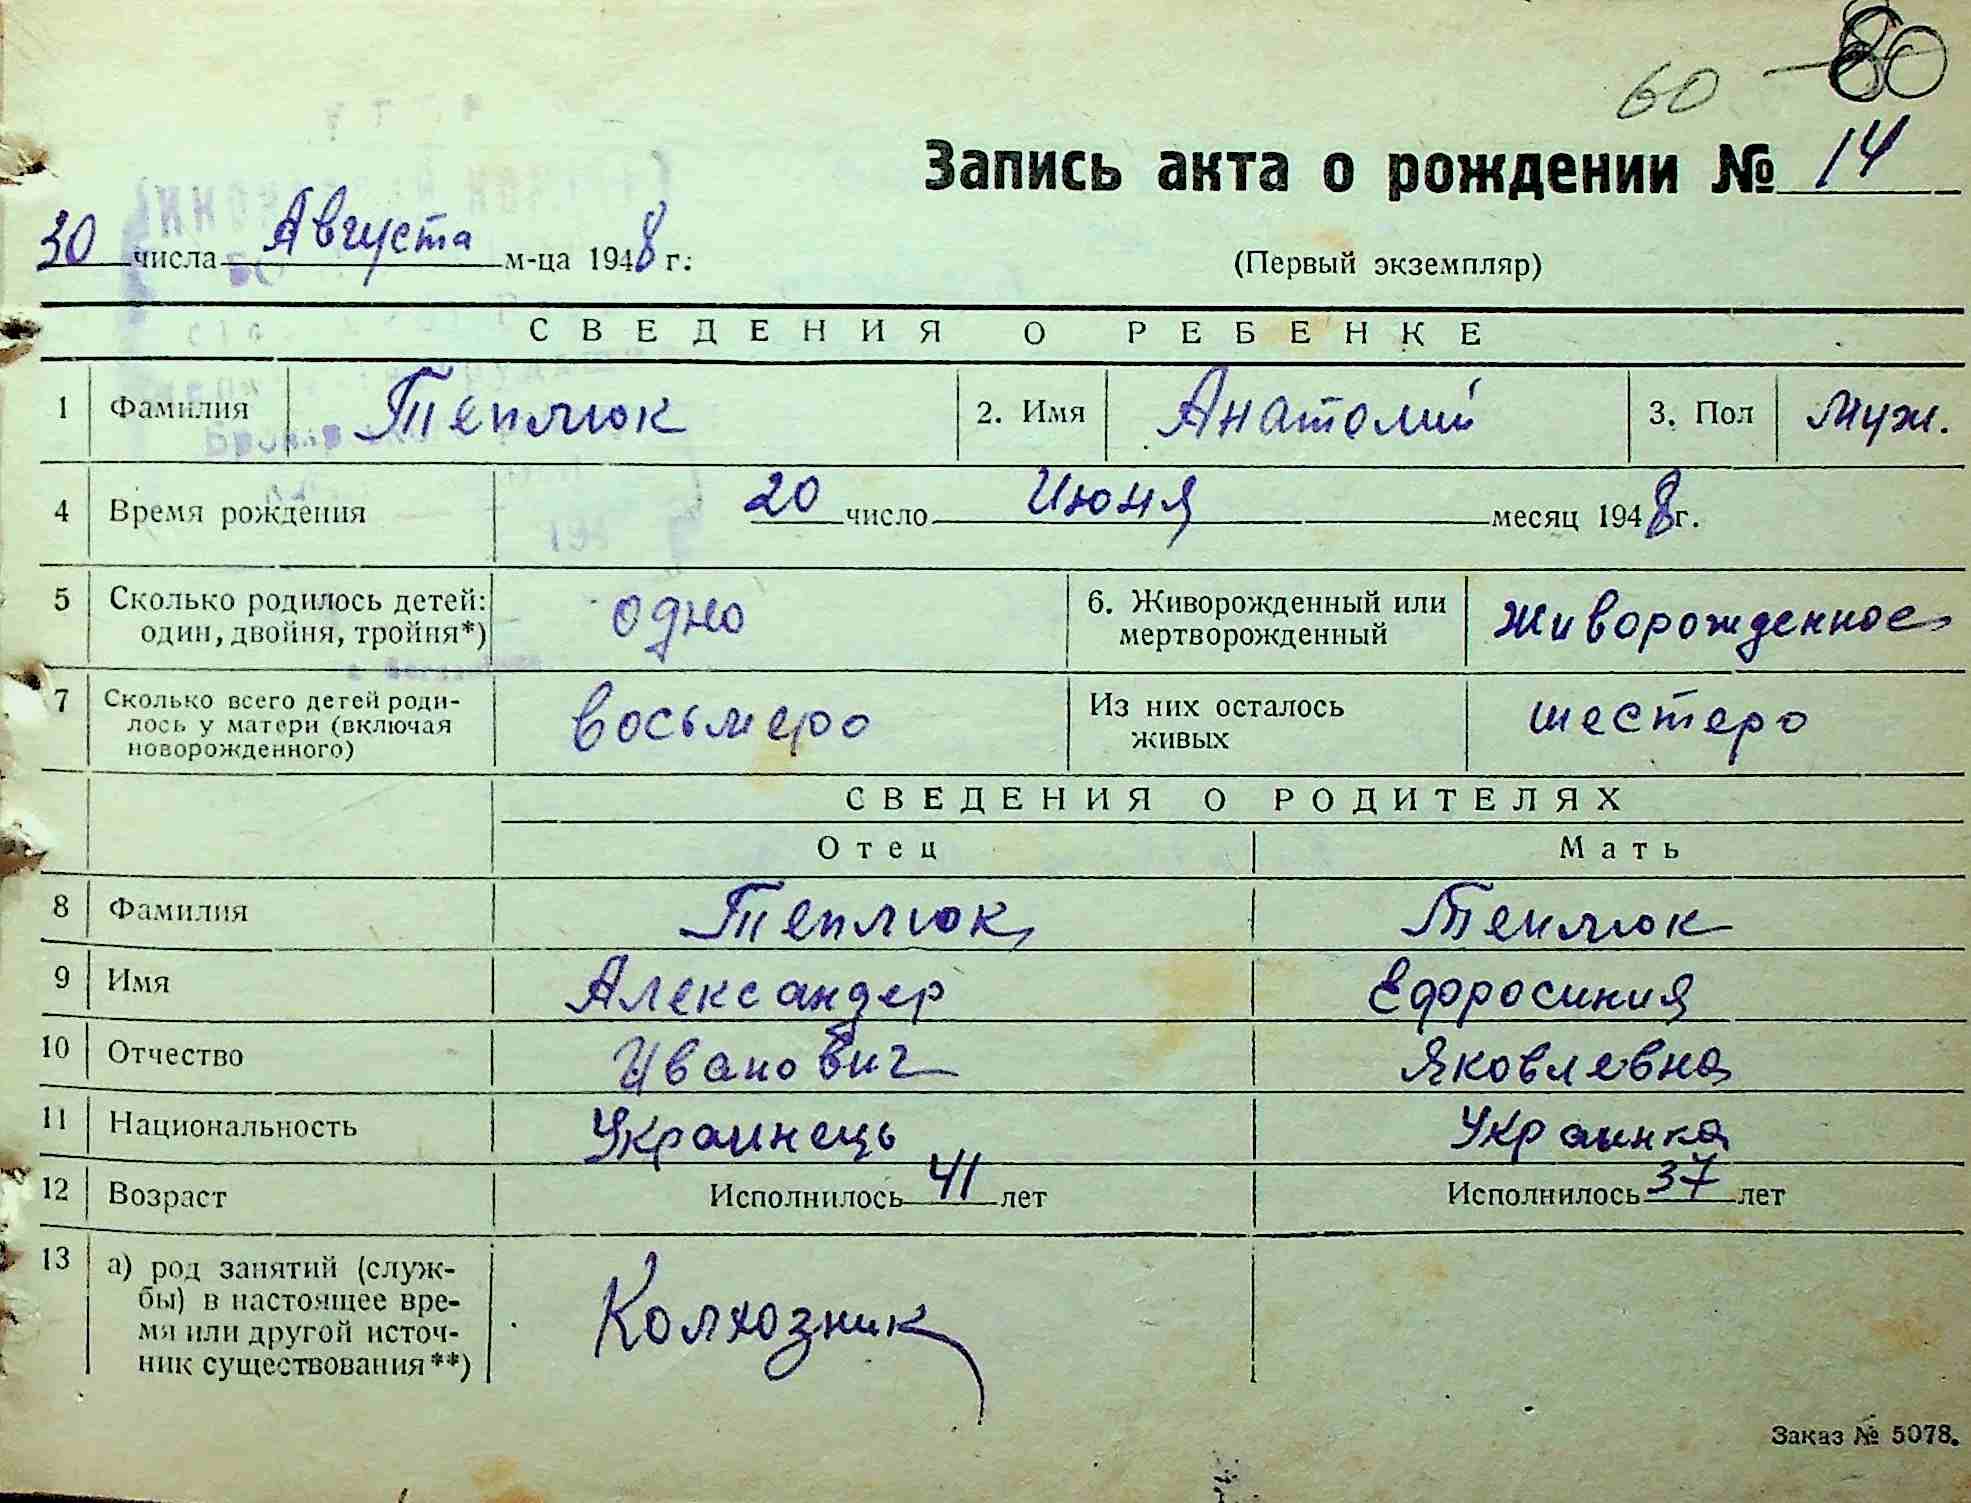 60 80
Запись акта о рождении № 14
30 числа Августа м-ца 1948 г.
(Первый экземпляр)
СВЕДЕНИЯ О РЕБЕНКЕ
1 Фамилия Теплюк 2. Имя Анатолий 3. Пол Муж.
4 Время рождения 20 число Июня месяц 1948 г.
5 Сколько родилось детей: один, двойня, тройня*) одно 6. Живорожденный или мертворожденный живорожденное
7 Сколько всего детей роди-
лось у матери (включая
новорожденного) восьмеро Из них осталось живых шестеро
СВЕДЕНИЯ О РОДИТЕЛЯХ
Отец Мать
8 Фамилия Теплюк Теплюк
9 Имя Александер Ефросиния
10 Отчество Иванович Яковлевна
11 Национальность Украинець Украинка
12 Возраст Исполнилось 41 лет Исполнилось 37 лет
13 а) род занятий (служ-
бы) в настоящее вре-
мя или другой источ-
ник существования**) Колхозник
Заказ № 5078.